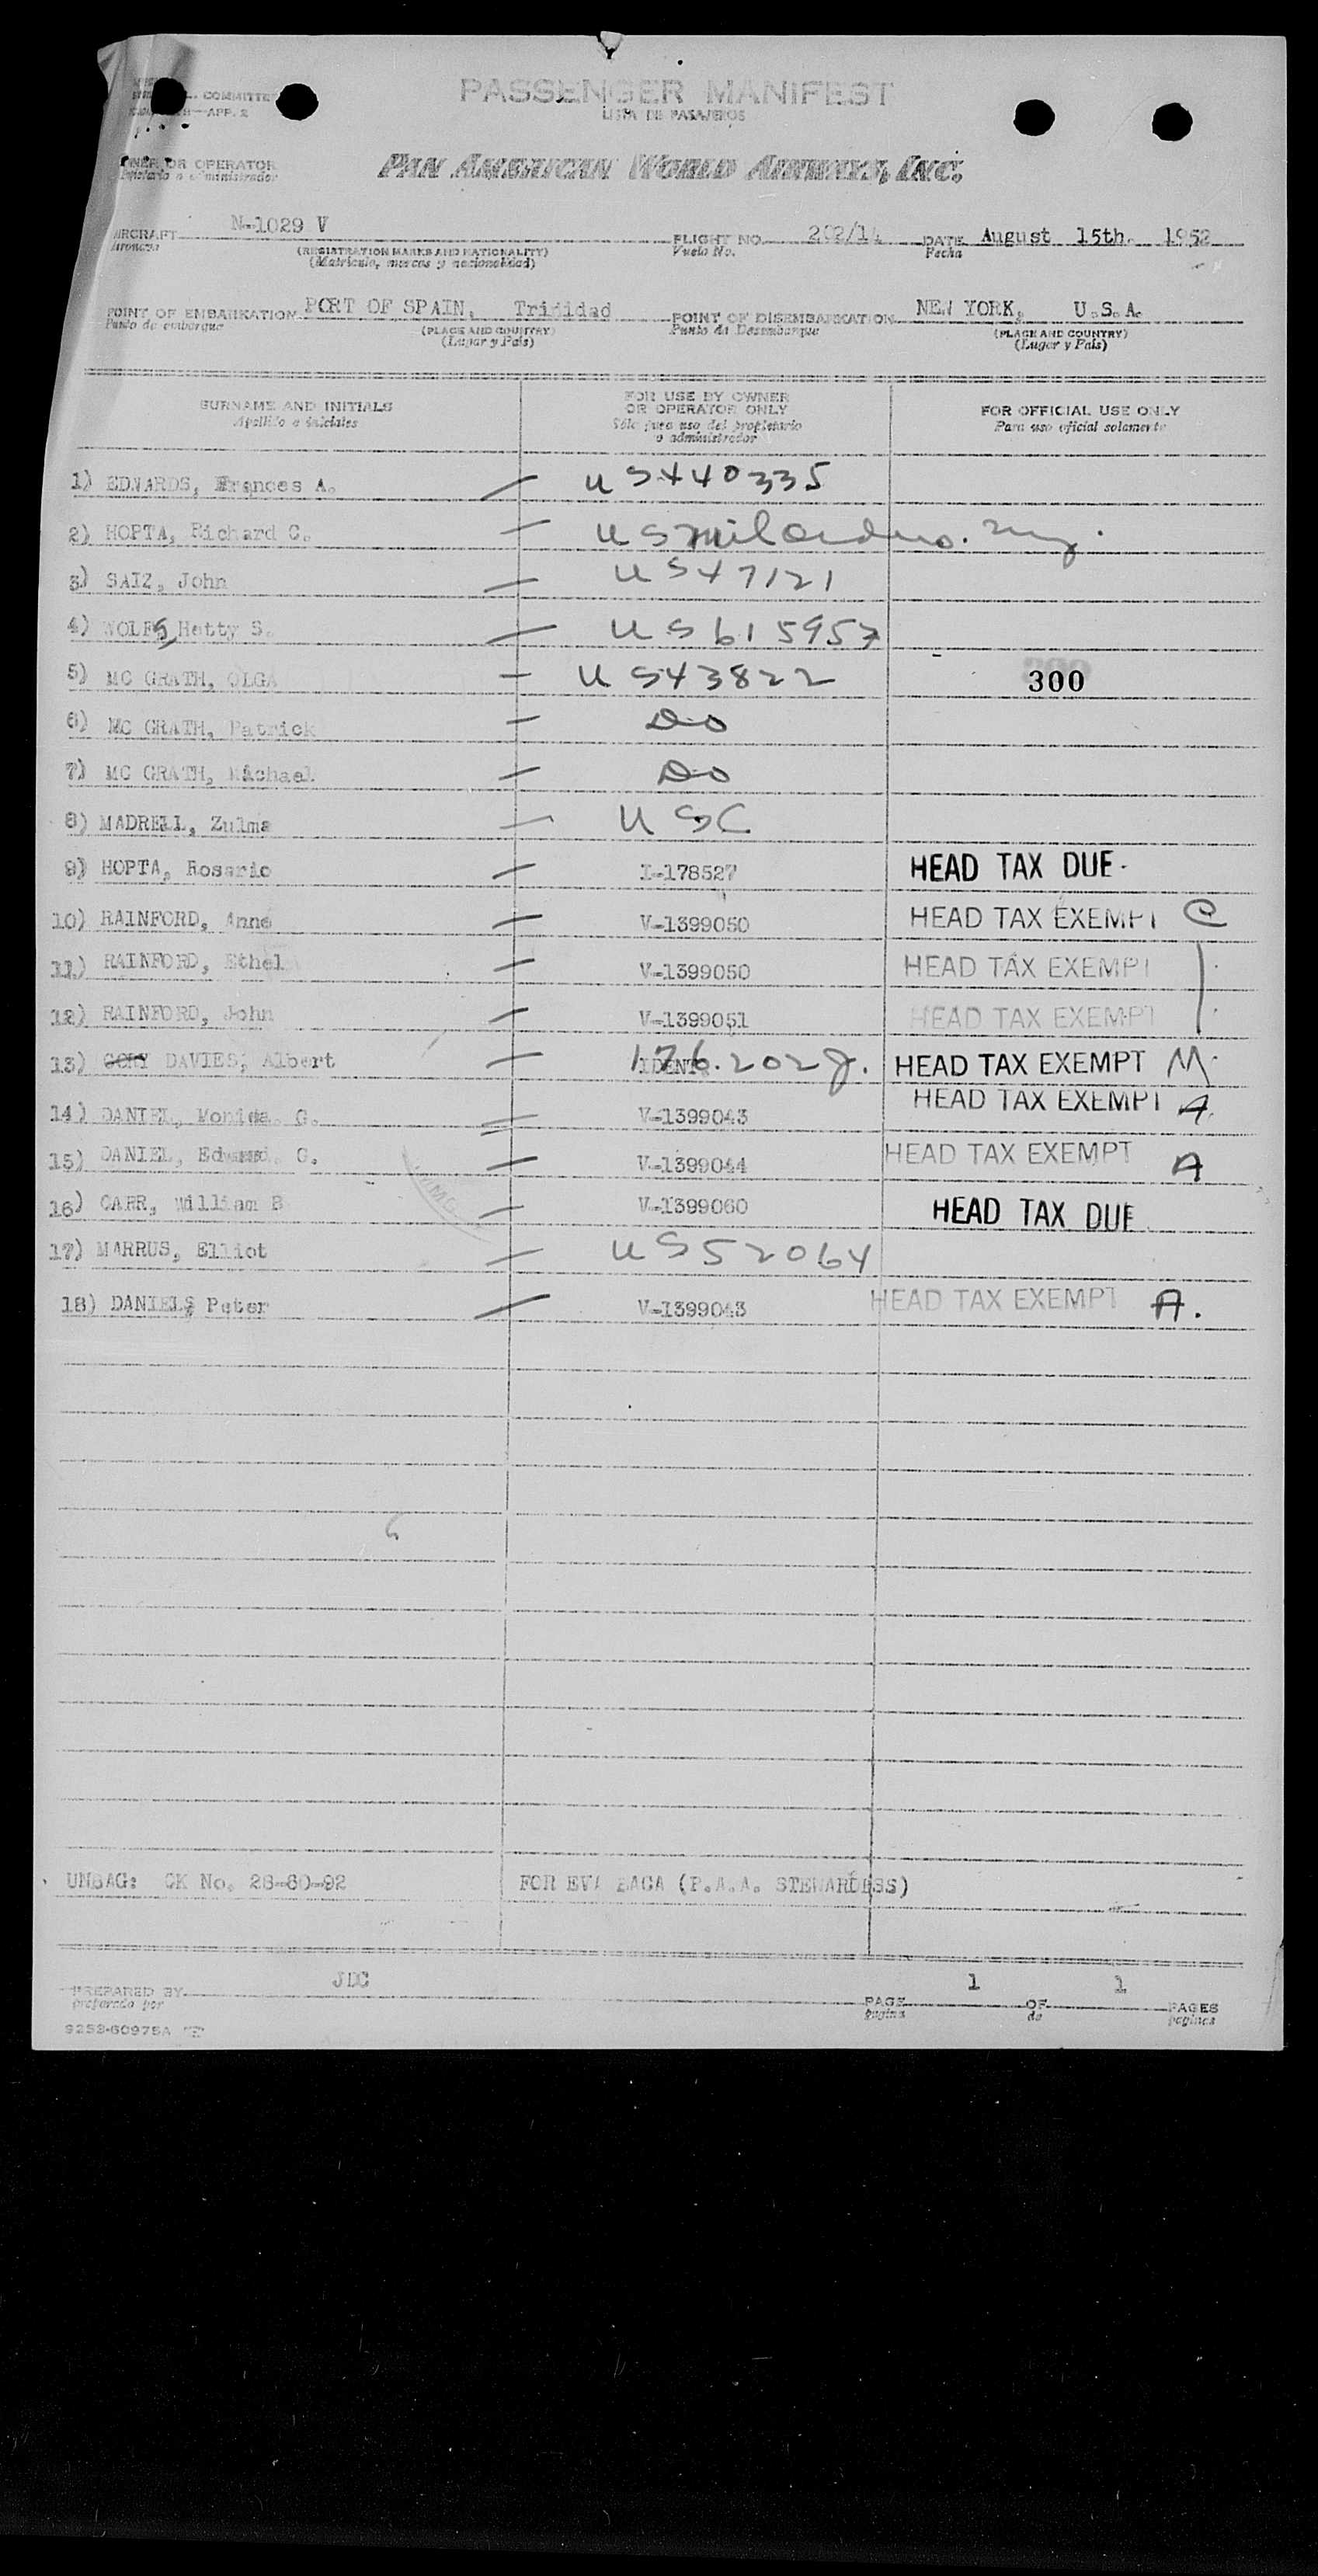 COMMITTEE
APP. 2
PASSENGER MANIFEST
LISTA DE PASAJEROS
OR OPERATOR
PAN AMERICAN WORLD AIRWAYS, INC.
AIRCRAFT N-1029 V FLIGHT NO. 202/14 DATE August 15th. 1952
Aeronave (REGISTRATION MARKS AND NATIONALITY) Vuelo No. Fecha
(Matricula, marcas y nacionalidad)
POINT OF EMBARKATION PORT OF SPAIN, Trinidad POINT OF DISEMBARKATION NEW YORK, U.S.A.
Punto de embarque (PLACE AND COUNTRY) Punto de Desembarque (PLACE AND COUNTRY)
(Lugar y País) (Lugar y País)
SURNAME AND INITIALS FOR USE BY OWNER OR OPERATOR ONLY FOR OFFICIAL USE ONLY
Apellido e iniciales Sólo para uso del propietario o administrador Para uso oficial solamente
1) EDWARDS, Frances A. US440335
2) HOPTA, Richard C. US mil
3) SAIZ, John US47121
4) WOLFS, Hetty S. US615957
5) MC GRATH, OLGA US43822 300
6) MC GRATH, Patrick Do
7) MC GRATH, Michael Do
8) MADRELL, Zulma USC
9) HOPTA, Rosario I-178527 HEAD TAX DUE
10) RAINFORD, Anne V-1399050 HEAD TAX EXEMPT C
11) RAINFORD, Ethel V-1399050 HEAD TAX EXEMPT
12) RAINFORD, John V-1399051 HEAD TAX EXEMPT
13) DAVIES, Albert IDENT. 176.202 HEAD TAX EXEMPT M
14) DANIEL, Monica. G. V-1399043 HEAD TAX EXEMPT A.
15) DANIEL, Edward. G. V-1399044 HEAD TAX EXEMPT A
16) CARR, William B V-1399060 HEAD TAX DUE
17) MARRUS, Elliot US52064
18) DANIEL, Peter V-1399043 HEAD TAX EXEMPT A.
UNBAG: CK No. 28-60-92 FOR EVA BACA (P.A.A. STEWARDESS)
PREPARED BY JDC PAGE 1 OF 1 PAGES
preparado por pagina de paginas
9253-60975A